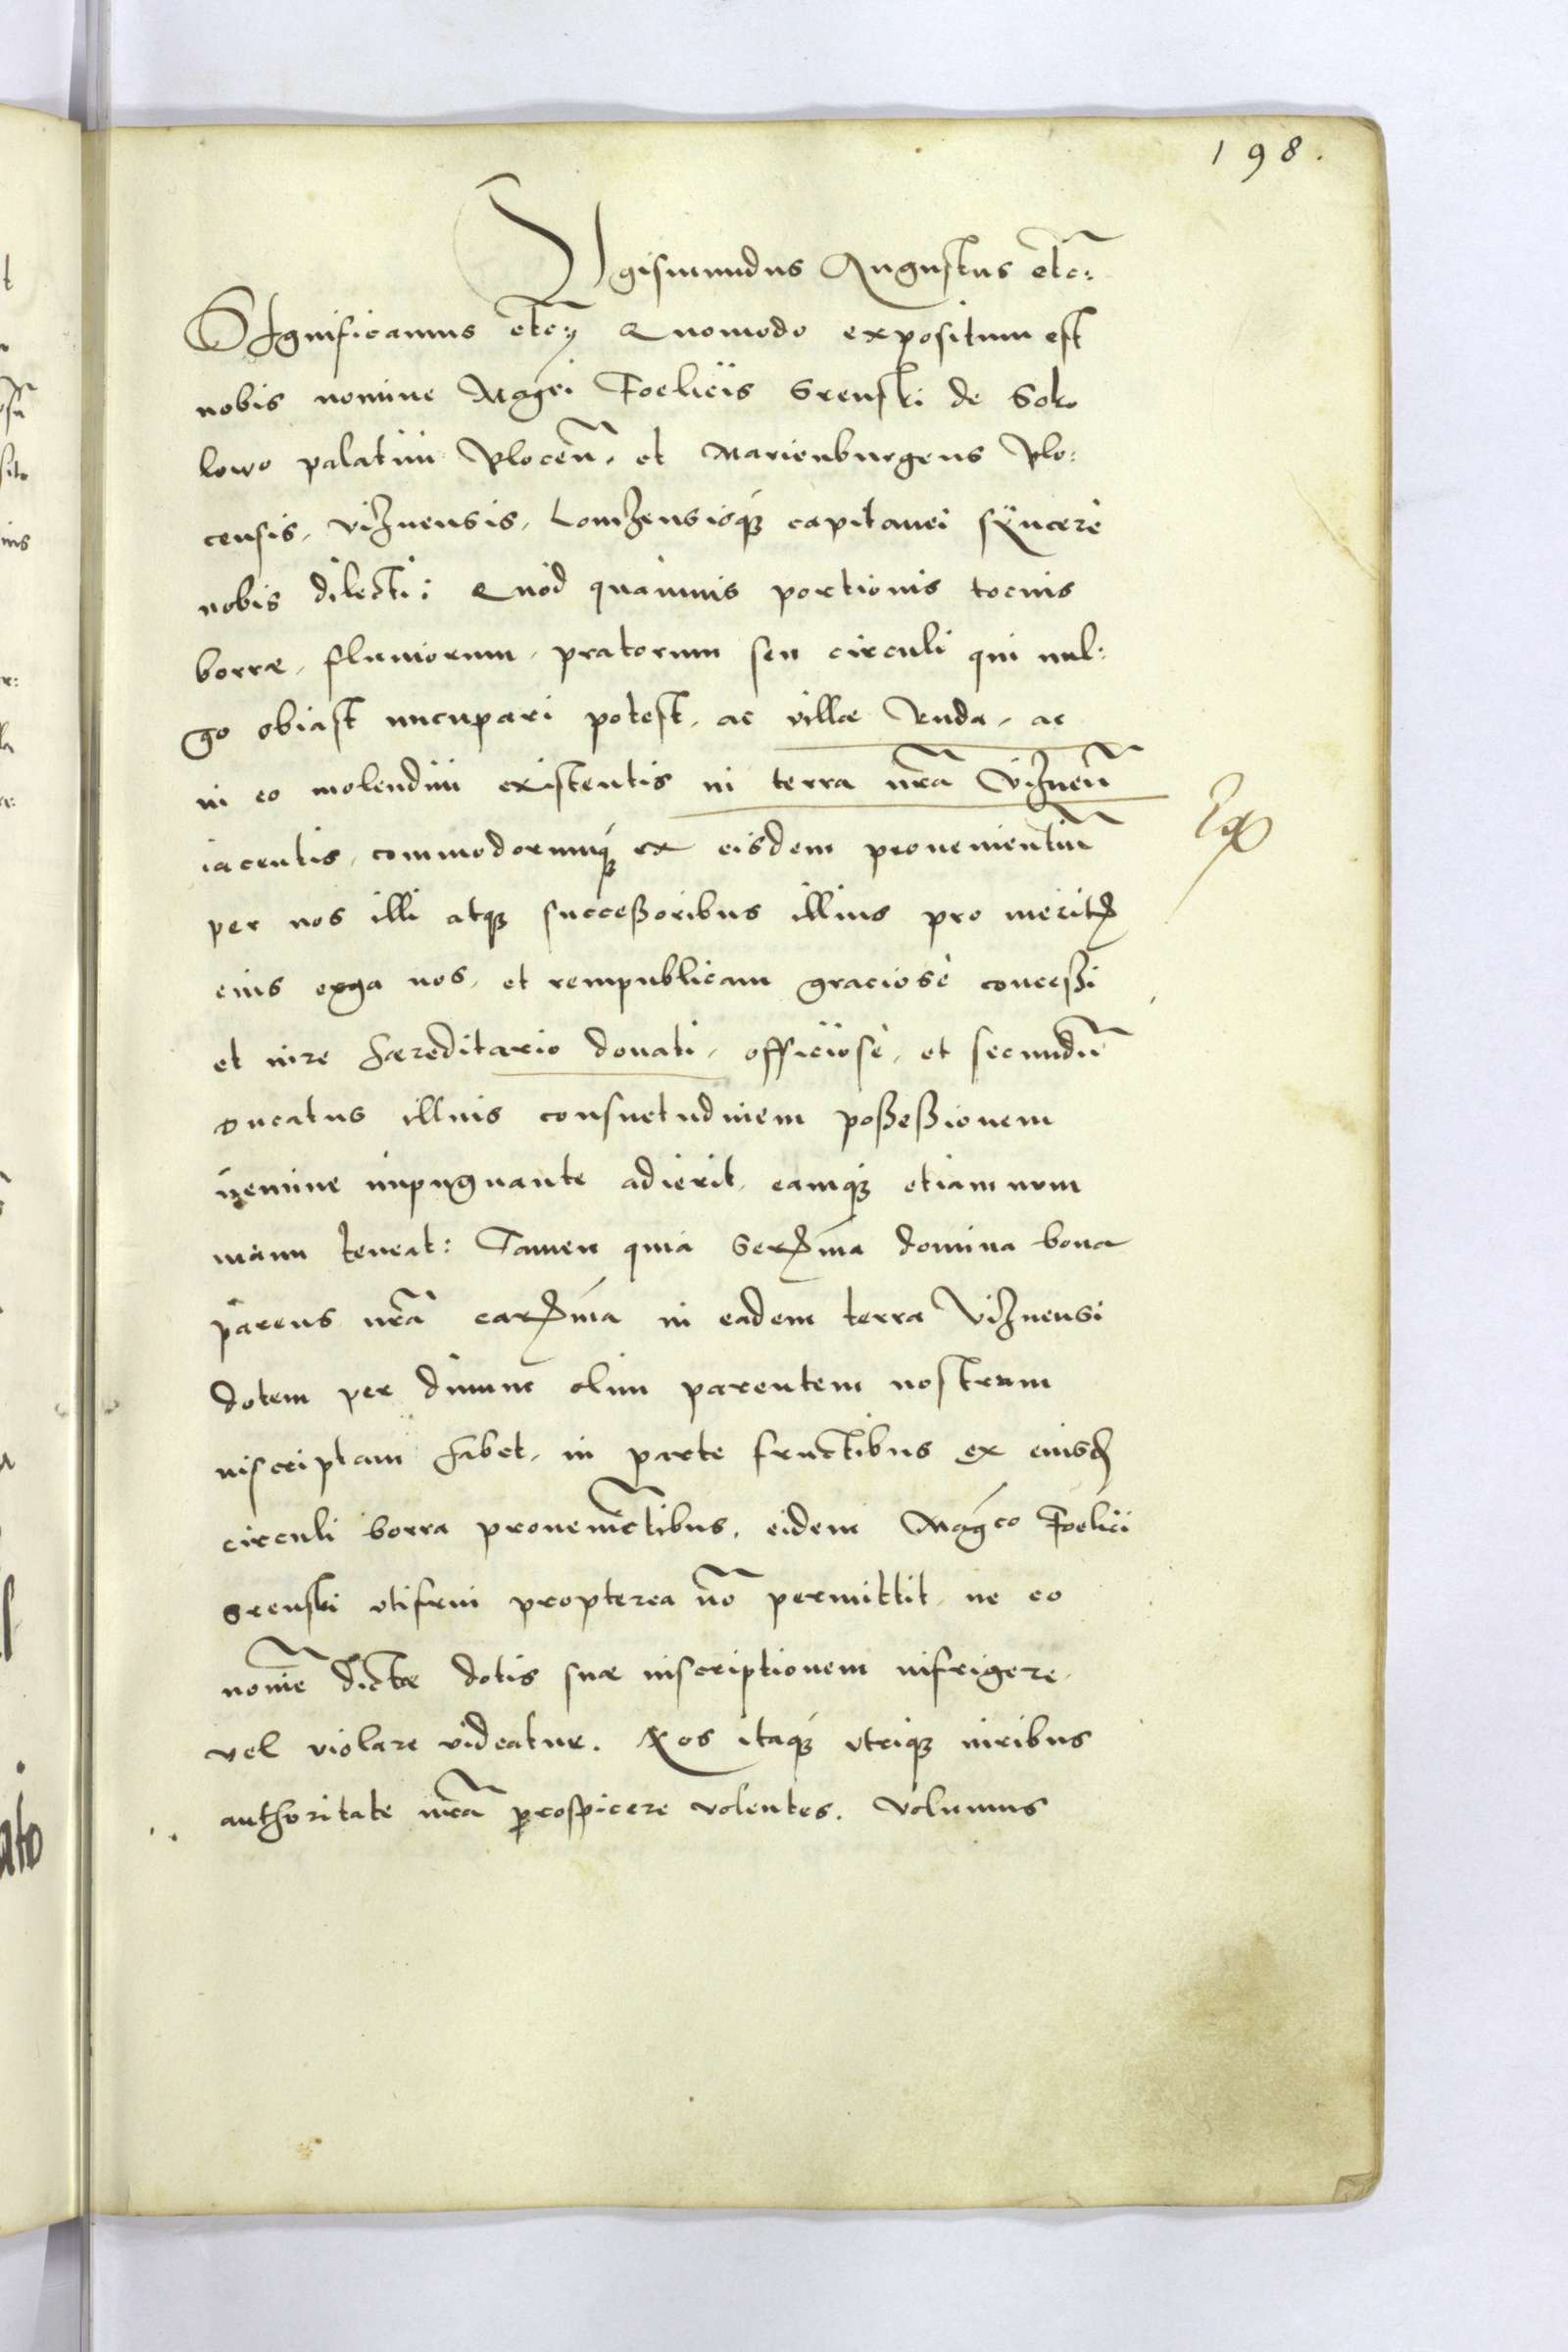 198.
Sigismundus Augustus etc:
SIgnificamus etc, Quomodo expositum est
nobis nomine Magci Foelicis Srenski de Soko
lowo palatini Plocen̄, et Marienburgens Plo:
censis, Viznensis, Lomzensisq́ꝫ capitanei sÿncerè
nobis dilecti: Quòd quamuis portionis tocius
borræ, fluuiorum, pratorum seu circuli qui uul:
go obiast nucupari potest, ac villæ Ruda, ac
in eo molendini existentis in terra nr̄a Viznen̄
iacentis, commodorumq́ꝫ ex eisdem prouenientiū
per nos illi atqꝫ successoribus illius pro meritꝭ
eius erga nos, et rempublicam graciosè concessi
et iure hæreditario donati, officiosè, et secundū
Ducatus illius consuetudinem possessionem
nemine impugnante adierit, eamq́ꝫ etiam num
manu teneat: Tamen quia Serꝭma domina bona
parens nr̄a carꝭma in eadem terra Viznensi
dotem per diuum olim parentem nostrum
inscriptam habet, in parte fructibus ex eiusd
circuli borra prouenīetibus, eidem Maǵco Foelici
Srenski utifrui propterea nō permittit, ne eo
noīe dictæ dotis suæ inscriptionem infrigere,
vel violare videatur. Nos itaq́ꝫ utriqꝫ iuribus
authoritate nr̄a prospicere volentes. Volumus